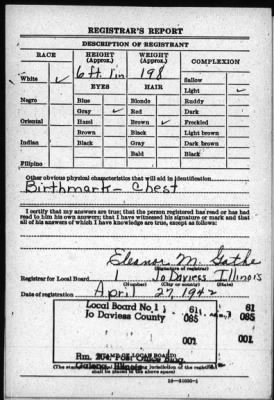 REGISTRAR'S REPORT
DESCRIPTION OF REGISTRANT
RACE HEIGHT (Approx.) WEIGHT (Approx.) COMPLEXION
White ✓ 6 ft. 1 in 198 Sallow
EYES HAIR Light ✓
Negro Blue Blonde Ruddy
Gray ✓ Red Dark
Oriental Hazel Brown ✓ Freckled
Brown Black Light brown
Indian Black Gray Dark brown
Bald Black
Filipino
Other obvious physical characteristics that will aid in identification
Birthmark - Chest
I certify that my answers are true; that the person registered has read or has had
read to him his own answers; that I have witnessed his signature or mark and that
all of his answers of which I have knowledge are true, except as follows:
Eleanor M.
(Signature of registrar)
Registrar for Local Board 1 Jo Daviess Illinois
(Number) (City or county) (State)
Date of registration April 27, 1942
Local Board No. 1 61 61
Jo Daviess County 085 085
001 001
Rm. 204, Post Office Bldg.
Galena, Illinois
(STAMP OF LOCAL BOARD)
(The stamp of the Local Board having jurisdiction of the registrant
shall be placed in the above space)